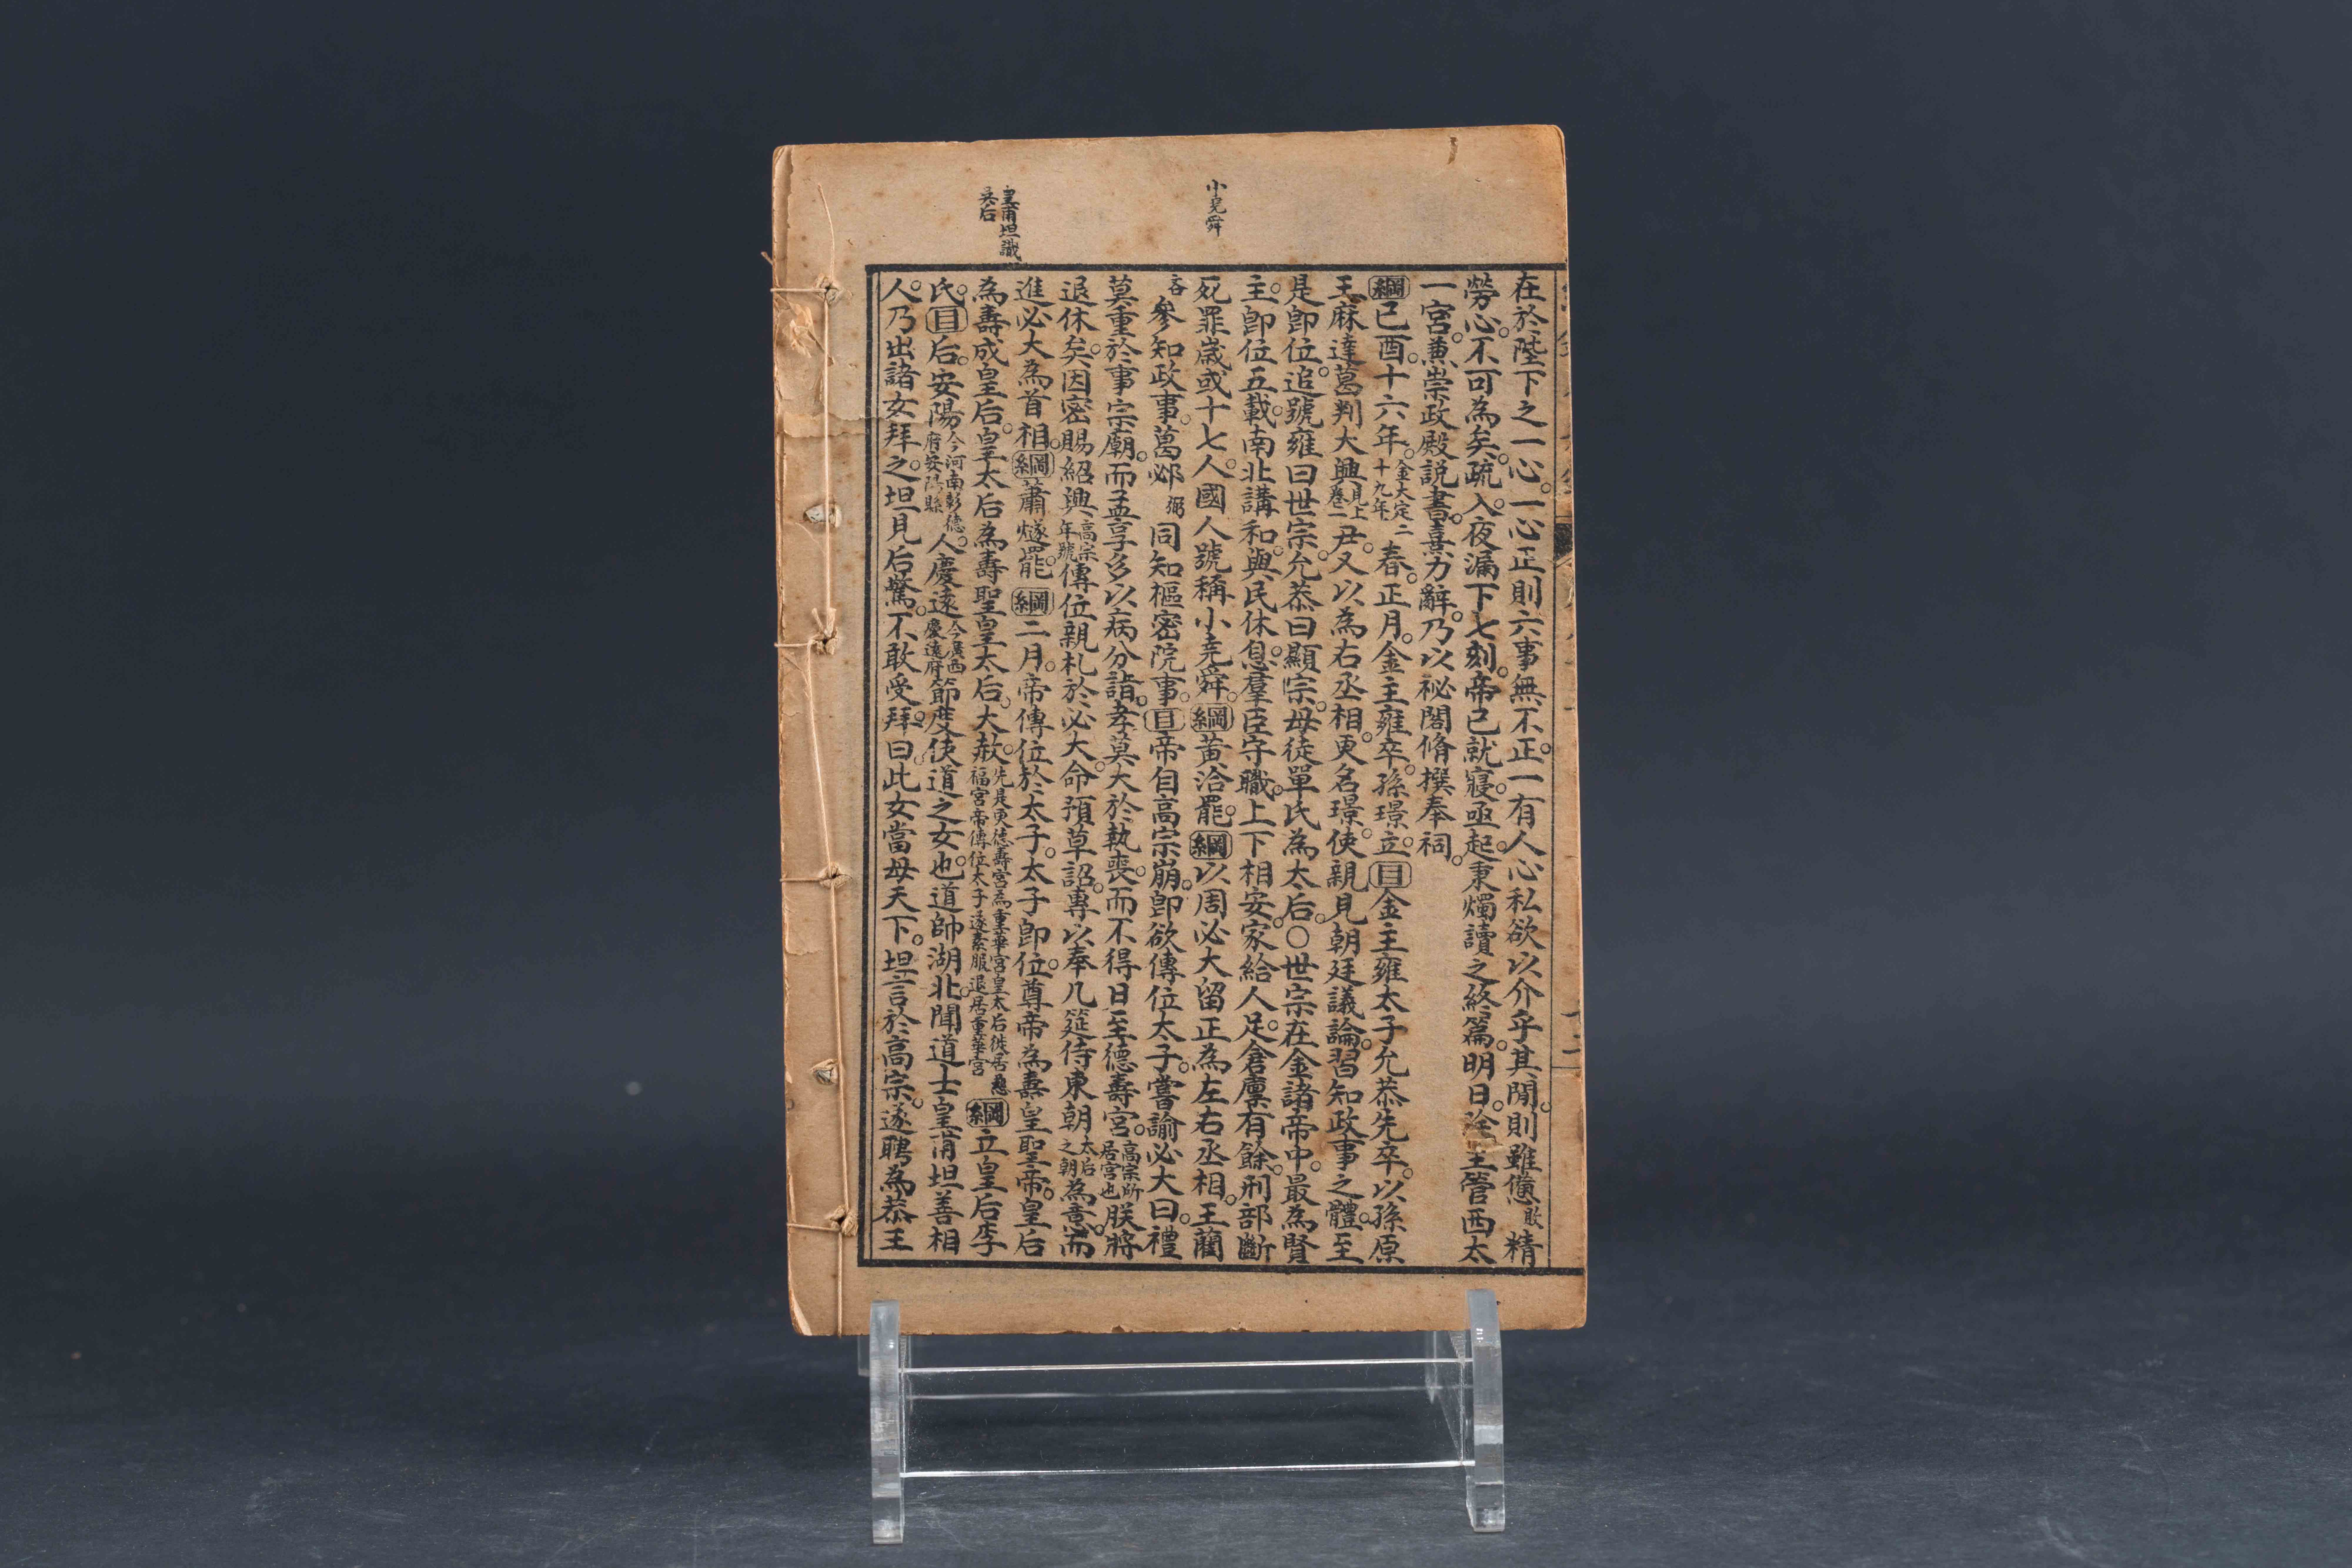 小堯舜
皇甫坦識
吳后
在於陛下之一心。一心正則六事無不正。一有人心私欲以介乎其間。則雖憊敗精
勞心。不可為矣。疏入。夜漏下七刻。帝已就寢。亟起。秉燭讀之終篇。明日。除主管西太
一宮。兼崇政殿說書。熹力辭。乃以祕閣脩撰奉祠。
綱己酉十六年。金大定二十九年。春。正月。金主雍卒。孫璟立。目金主雍太子允恭先卒。以孫原
王麻達葛判大興見上卷二尹。又以為右丞相。更名璟。使親見朝廷議論。習知政事之體。至
是即位。追號雍曰世宗。允恭曰顯宗。母徒單氏為太后。○世宗在金諸帝中。最為賢
主。即位五載。南北講和。與民休息。羣臣守職。上下相安。家給人足。倉廩有餘。刑部斷
死罪。歲或十七人。國人號稱小堯舜。綱黃洽罷。綱以周必大留正為左右丞相。王藺
吝參知政事。葛邲弼同知樞密院事。目帝自高宗崩。即欲傳位太子。嘗諭必大曰。禮
莫重於事宗廟。而孟享多以病分詣。孝莫大於執喪。而不得日至德壽宮。高宗所居宮也朕將
退休矣。因密賜紹興高宗年號傳位親札於必大。命預草詔。專以奉几筵侍東朝太后之朝為意。而
進必大為首相。綱蕭燧罷。綱二月。帝傳位於太子。太子即位。尊帝為壽皇聖帝。皇后
為壽成皇后。皇太后為壽聖皇太后。大赦。先是更德壽宮為重華宮皇太后徙居慈福宮帝傳位太子遂素服退居重華宮綱立皇后李
氏。目后。安陽今河南彰德府安陽縣人。慶遠今廣西慶遠府節度使道之女也。道帥湖北。聞道士皇甫坦善相
人。乃出諸女拜之。坦見后驚。不敢受拜。曰。此女當母天下。坦言於高宗。遂聘為恭王